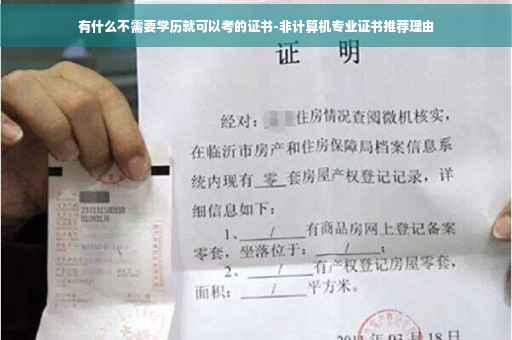 有什么不需要学历就可以考的证书-非计算机专业证书推荐理由
证 明
经对：住房情况查阅微机核实，
在临沂市房产和住房保障局档案信息系
统内现有 零 套房屋产权登记记录，详
细信息如下：
1、 / 有商品房网上登记备案
零套，坐落位于： / ；
2、 / 有产权登记房屋零套，
面积： / 平方米。
03 月 18 日